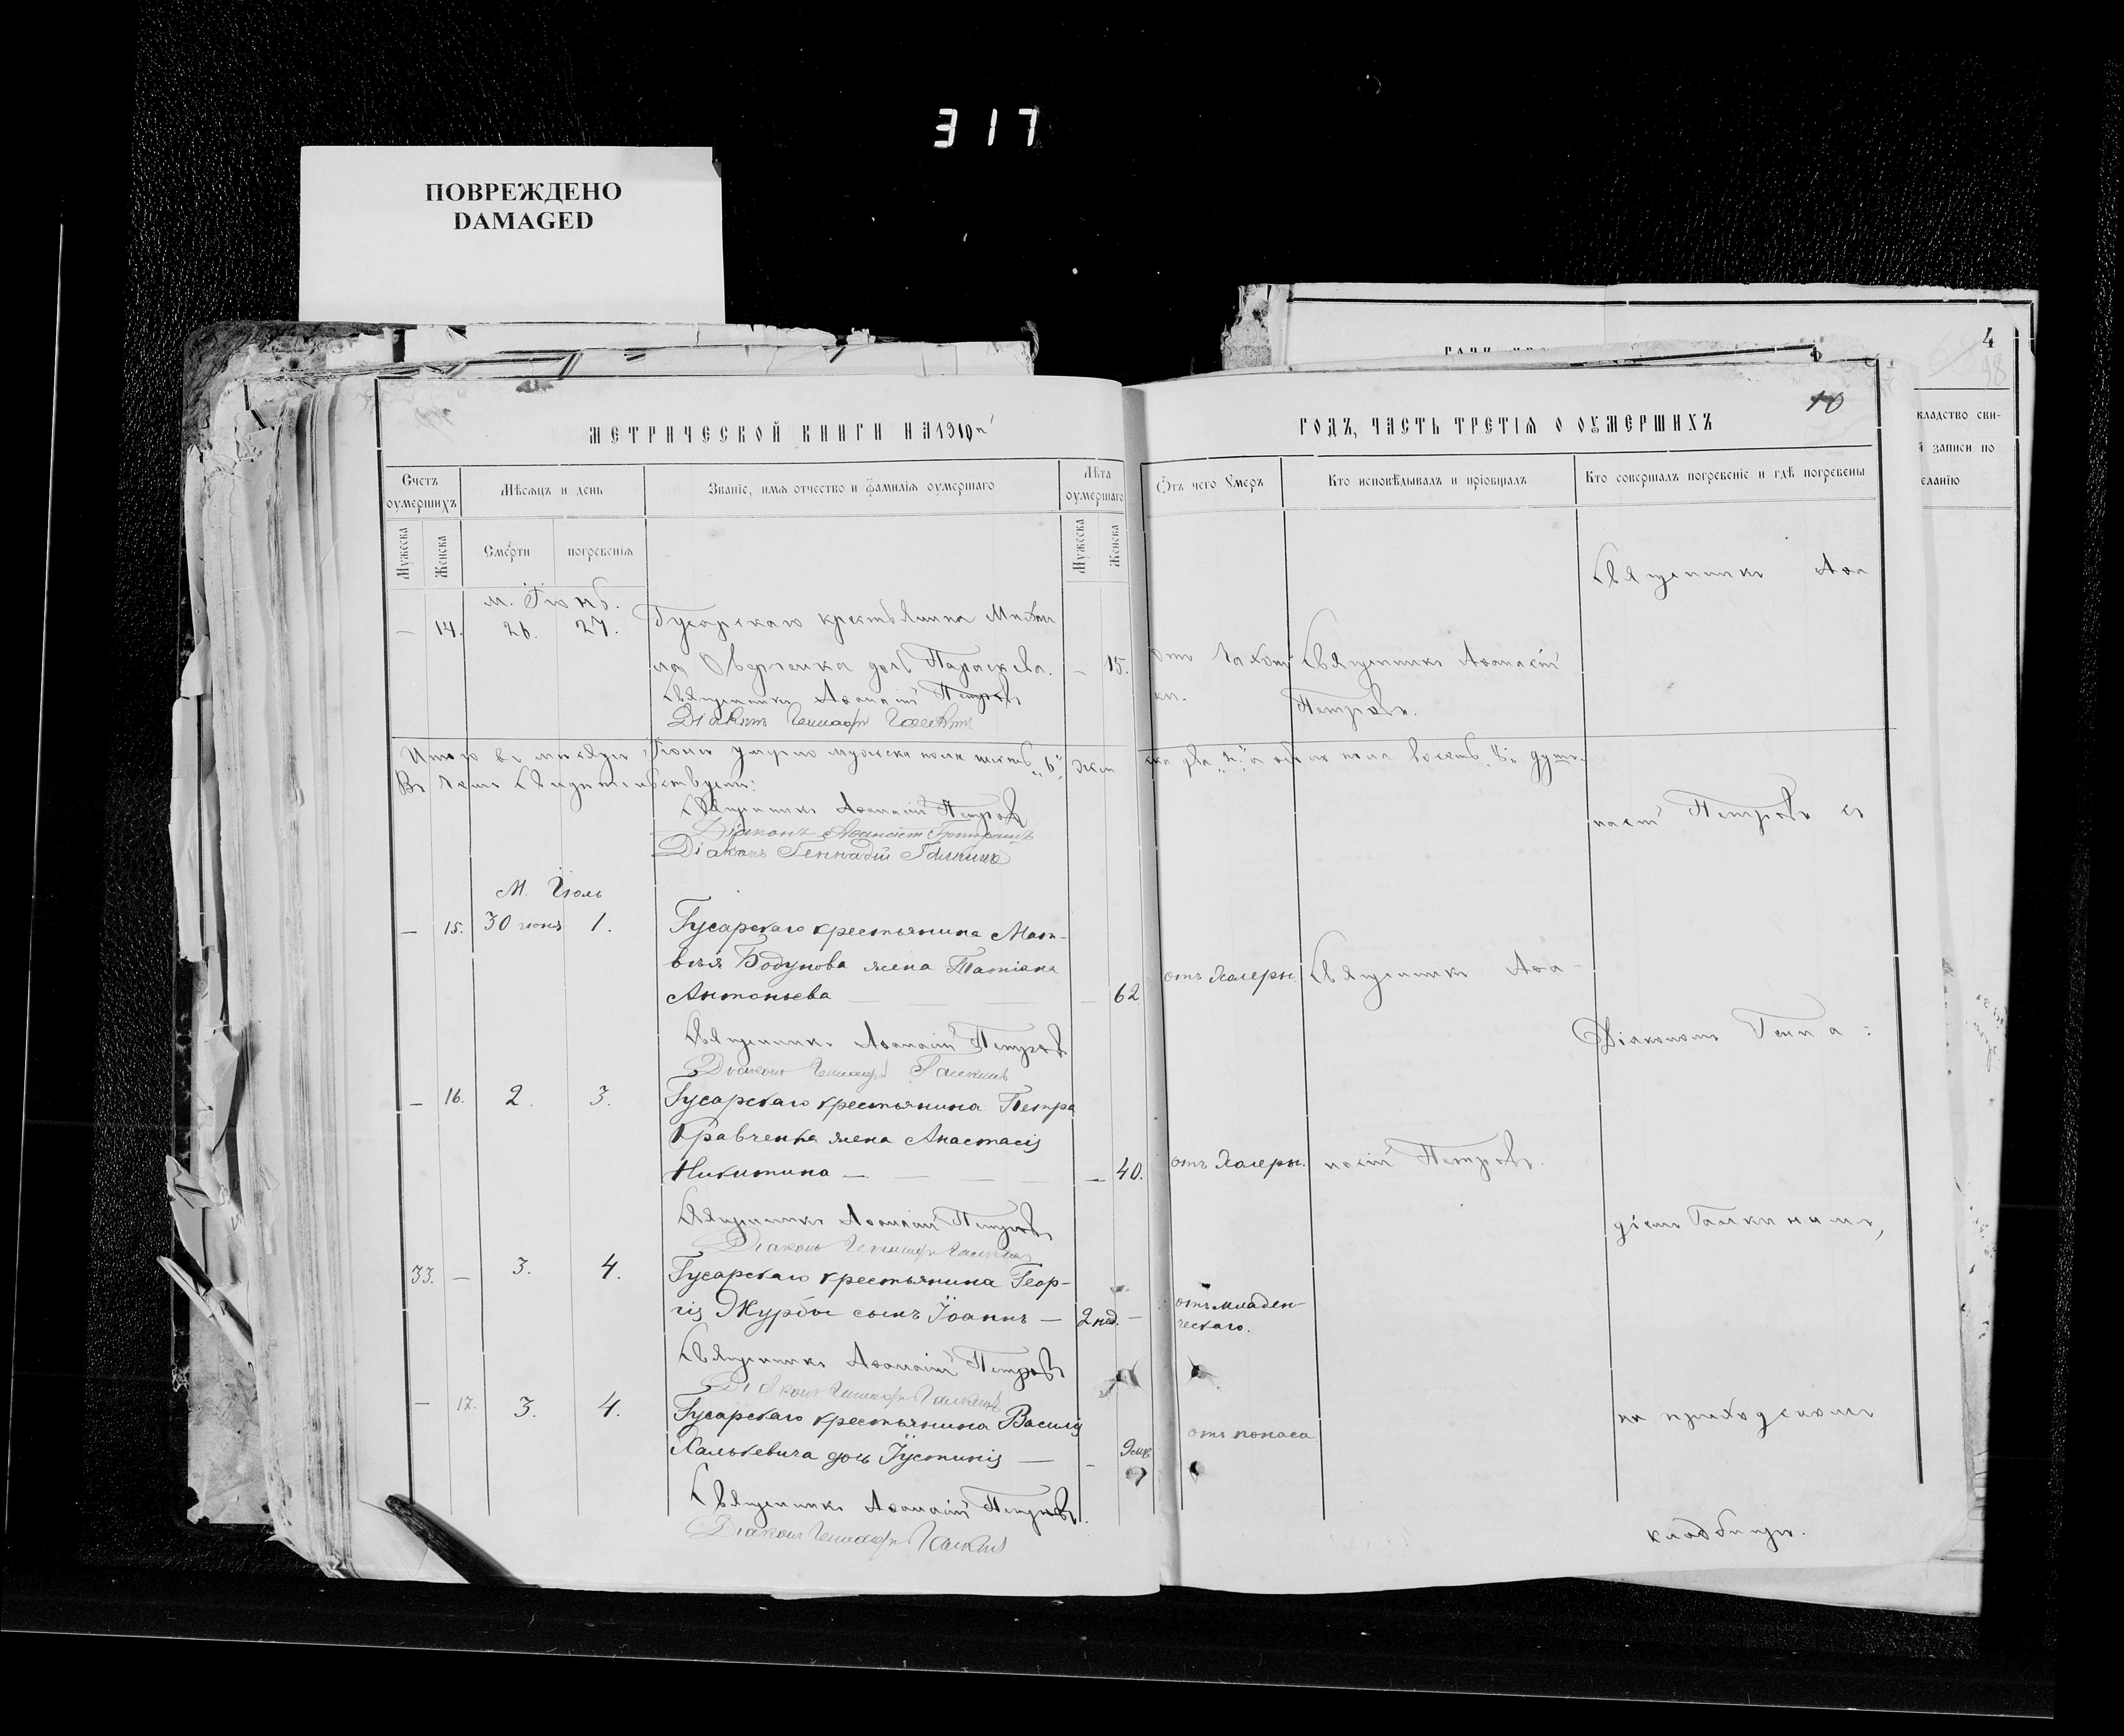 317
ПОВРЕЖДЕНО
DAMAGED
4
98
10
МЕТРИЧЕСКОЙ КНИГИ НА 1910й
ГОДЪ, ЧАСТЬ ТРЕТІЯ О ОУМЕРШИХЪ
Счетъ оумершихъ
Мѣсяцъ и день
Званіе, имя отчество и фамилія оумершаго
Лѣта оумершаго
Ѿтъ чего Умеръ
Кто исповѣдывалъ и пріобщалъ
Кто совершалъ погребеніе и гдѣ погребены
Мужеска
Женска
Смерти
погребенія
Мужеска
Женска
кладство сви-
й записи по
еланію
м. Іюнь.
— 14. 26. 27. Гусарскаго крестьянина Михаи
ла Оверченка дочь Параскева. — 15. отъ чахот
ки.
Священникъ Аѳанасій
Петровъ.
Священникъ Аѳанасій Петровъ
Діаконъ Геннадій Галкинъ
Священникъ Аѳа
Итого въ мѣсяцѣ Іюнѣ умерло мужеска пола шесть „6“, жен
ска два „2“ а обоего пола восемь „8“ душъ.
Въ чемъ свидѣтельствуемъ:
Священникъ Аѳанасій Петровъ
Діаконъ Аѳанасій
Діаконъ Геннадій Галкинъ
насій Петровъ съ
М. Іюль
— 15. 30 іюня 1. Гусарскаго крестьянина Мат-
вѣя Бодунова жена Татіана
Антоньева — — — — 62 отъ холеры. Священникъ Аѳа
Священникъ Аѳанасій Петровъ
Діаконъ Геннадій Галкинъ
Діакономъ Генна:
— 16. 2. 3. Гусарскаго крестьянина Петра
Кравченка жена Анастасія
Никитина — — — — — 40. отъ холеры. насій Петровъ.
Священникъ Аѳанасій Петровъ
Діаконъ Геннадій Галкинъ
діемъ Галкинымъ,
33. — 3. 4. Гусарскаго крестьянина Геор-
гія Журбы сынъ Іоаннъ — 2 нед. — отъ младен-
ческаго.
Священникъ Аѳанасій Петровъ
Діаконъ Геннадій Галкинъ
— 17. 3. 4. Гусарскаго крестьянина Василія
Халькевича дочь Іустинія — — 9 мѣс. отъ поноса
на приходскомъ
Священникъ Аѳанасій Петровъ.
Діаконъ Геннадій Галкинъ
кладбищѣ.